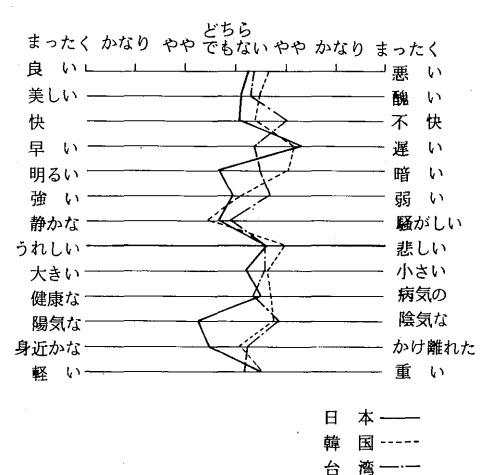 どちら
まったく かなり やや でもない やや かなり まったく
良い 悪い
美しい 醜い
快 不快
早い 遅い
明るい 暗い
強い 弱い
静かな 騒がしい
うれしい 悲しい
大きい 小さい
健康な 病気の
陽気な 陰気な
身近かな かけ離れた
軽い 重い
日本
韓国
台湾